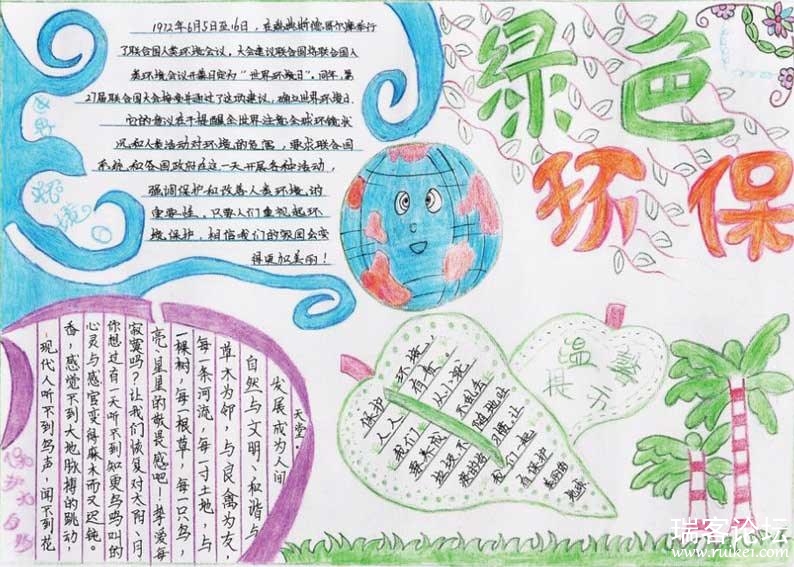 绿色
环保
1972年6月5日至16日，在瑞典斯德哥尔摩举行
了联合国人类环境会议，大会建议联合国将联合国人
类环境会议开幕日定为“世界环境日”。同年，第
27届联合国大会接受并通过了这项建议，确立世界环境日.
它的意义在于提醒全世界注意全球环境状
况和人类活动对环境的危害，要求联合国
系统和各国政府在这一天开展各种活动，
强调保护和改善人类环境的
重要性，只要人们重视起环
境保护，相信我们的祖国会变
得更加美丽！
世界
环境
日
保护大自然
现代人听不到鸟声，闻不到花
香，感觉不到大地脉搏的跳动
心灵与感官变得麻木而又迟钝。
你想过有一天听不到知更鸟鸟叫的
寂寞吗？让我们恢复对太阳、月
亮、星星的敬畏感吧！挚爱每
一棵树，每一根草，每一只鸟，
每一条河流，每一寸土地，与
草木为邻，与良禽为友，
自然与文明、和谐与
发展成为人间
天堂。
温馨
提示
保护环境，
人人有责.
我们从小就
要养成不乱丢
垃圾不随地吐
痰的好习惯让
我们一起
去保护
美丽的
地球
瑞客论坛
www.ruikei.com